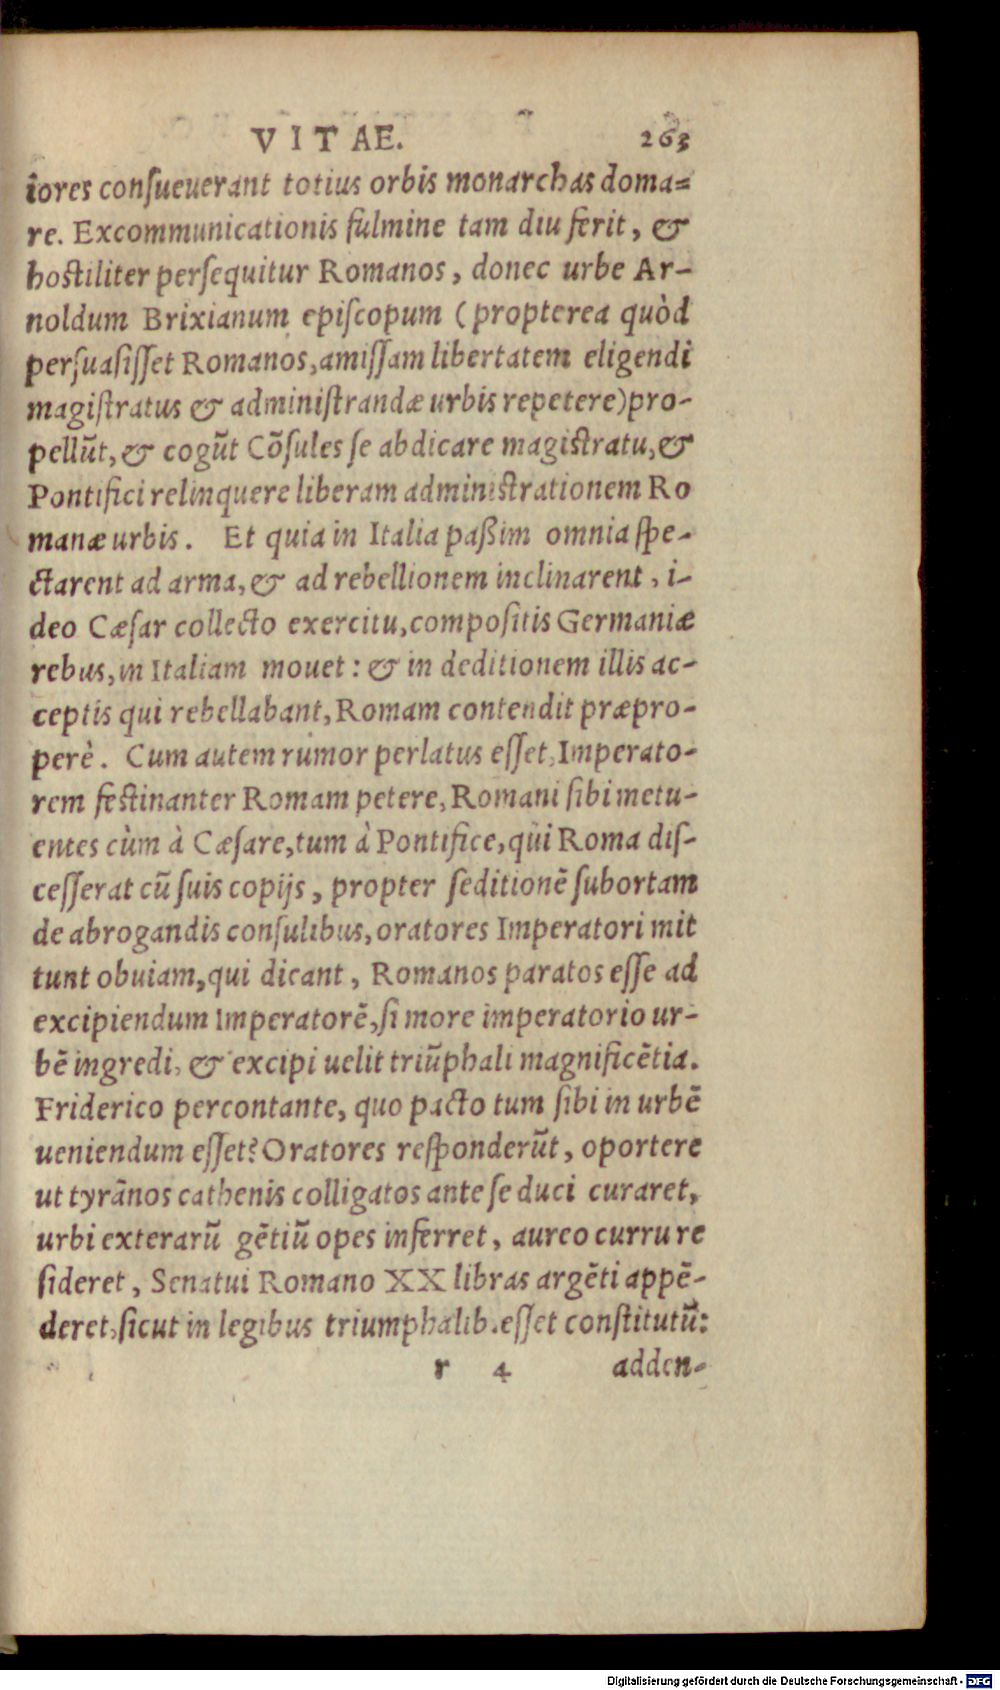 VITAE. 263
iores conſueuerant totius orbis monarchas doma=
re. Excommunicationis fulmine tam diu ferit, &
hoſtiliter perſequitur Romanos, donec urbe Ar-
noldum Brixianum epiſcopum (propterea quòd
perſuaſiſſet Romanos, amiſſam libertatem eligendi
magiſtratus & adminiſtrandæ urbis repetere) pro-
pellũt, & cogũt Cõſules ſe abdicare magiſtratu, &
Pontifici relinquere liberam adminiſtrationem Ro
manæ urbis. Et quia in Italia paßim omnia ſpe-
ctarent ad arma, & ad rebellionem inclinarent, i-
deo Cæſar collecto exercitu, compoſitis Germaniæ
rebus, in Italiam mouet: & in deditionem illis ac-
ceptis qui rebellabant, Romam contendit præpro-
perè. Cum autem rumor perlatus eſſet, Imperato-
rem feſtinanter Romam petere, Romani ſibi metu-
entes cùm à Cæſare, tum à Pontifice, qui Roma diſ-
ceſſerat cũ ſuis copijs, propter ſeditionẽ ſubortam
de abrogandis conſulibus, oratores Imperatori mit
tunt obuiam, qui dicant, Romanos paratos eſſe ad
excipiendum Imperatorẽ, ſi more imperatorio ur-
bẽ ingredi, & excipi uelit triũphali magnificẽtia.
Friderico percontante, quo pacto tum ſibi in urbẽ
ueniendum eſſet? Oratores reſponderũt, oportere
ut tyrãnos cathenis colligatos ante ſe duci curaret,
urbi exterarũ gẽtiũ opes inferret, aureo curru re
ſideret, Senatui Romano XX libras argẽti appẽ-
deret, ſicut in legibus triumphalib. eſſet conſtitutũ:
r 4 adden-
Digitalisierung gefördert durch die Deutsche Forschungsgemeinschaft - DFG